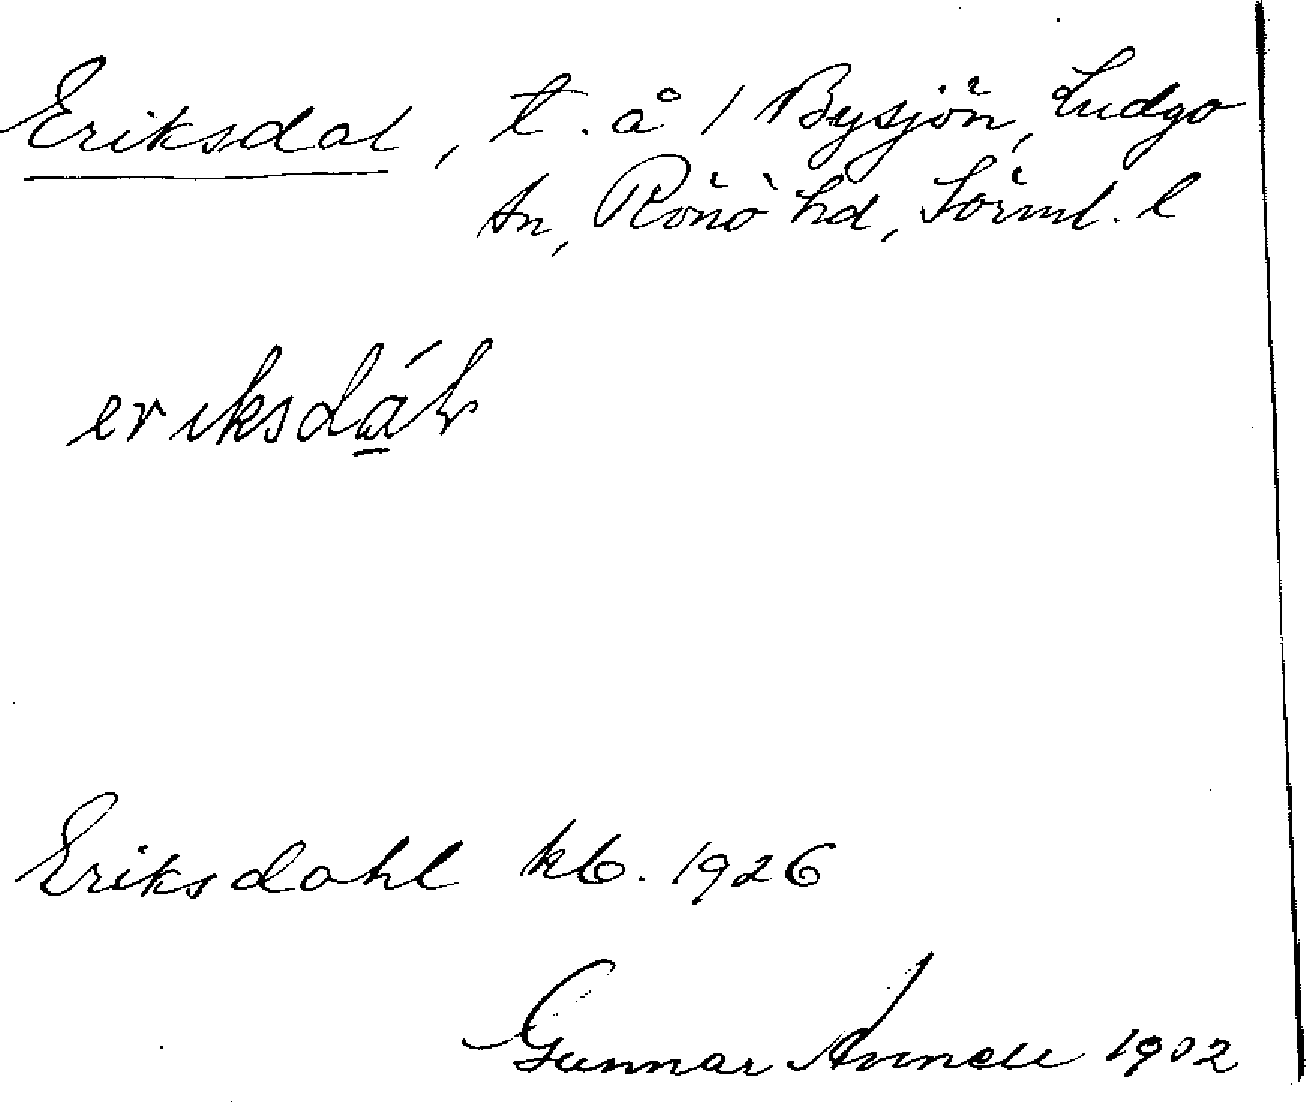 Eriksdal, t. å 1 Bysjön, Ludgo
sn, Rönö hd, Sörml. l
eriksdál
Eriksdahl kb. 1926
Gunnar Annell 1932